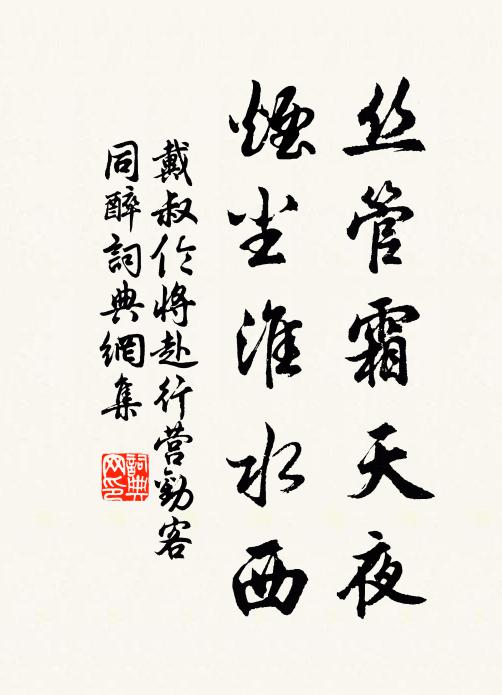 丝管霜天夜
烟尘淮水西
戴叔伦将赴行营劝客
同醉词典网集
词典网印